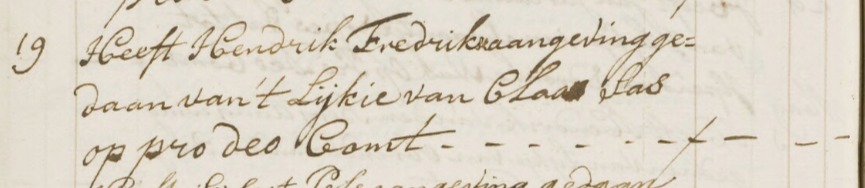 19 Heeft Hendrik Fredriks aangeving ge=
daan van't Lijkie van Claas Bas
op pro deo Comt - - - - - - ƒ - - -
aangeving gedaan